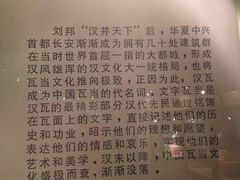 刘邦“汉并天下”后，华夏中兴
首都长安渐渐成为拥有几十处建筑群
在当时世界首屈一指的大都城，形成
汉风雄浑的汉文化大一统格局，也将
瓦当文化推向极致，正因为此，汉瓦
成为中国瓦当的代名词。文字瓦当是
汉瓦的最精彩部分汉代先民通过铭饰
在瓦面上的文字，直接记述他们的历
史和功业，昭示他们的理想和愿望，
表达他们的情感和哀乐，实现他们的
艺术和美学。汉末以降，中国瓦当文
化盛极而衰，渐渐没落。